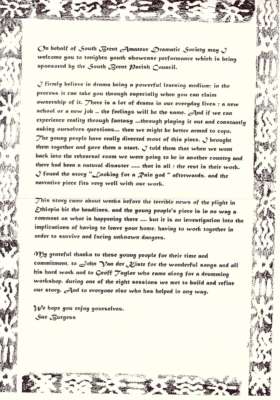 On behalf of South Brent Amateur Dramatic Society may I
welcome you to tonights youth showcase performance which is being
sponsored by the South Brent Parish Council.
I firmly believe in drama being a powerful learning medium: in the
process it can take you through especially when you can claim
ownership of it. There is a lot of drama in our everyday lives : a new
school or a new job .. the feelings will be the same. And if we can
experience reality through fantasy ..through playing it out and constantly
asking ourselves questions... then we might be better armed to cope.
The young people have really directed most of this piece. I brought
them together and gave them a start. I told them that when we went
back into the rehearsal room we were going to be in another country and
there had been a natural disaster ..... that is all : the rest is their work.
I found the story "Looking for a Rain god " afterwards, and the
narrative piece fits very well with our work.
This story came about weeks before the terrible news of the plight in
Ethiopia hit the headlines, and the young people's piece is in no way a
comment on what is happening there .... but it is an investigation into the
implications of having to leave your home, having to work together in
order to survive and facing unknown dangers.
My grateful thanks to these young people for their time and
commitment, to John Van der Kiste for the wonderful songs and all
his hard work and to Geoff Taylor who came along for a drumming
workshop, during one of the eight sessions we met to build and refine
our story. And to everyone else who has helped in any way.
We hope you enjoy yourselves.
Sue Burgess